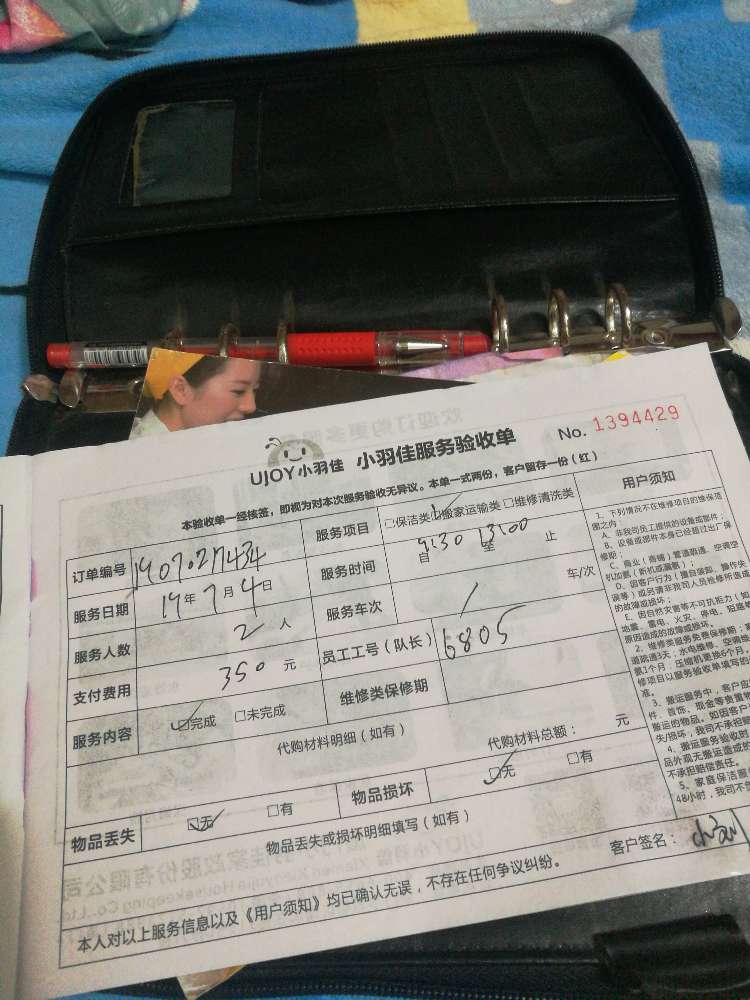 UJOY小羽佳 小羽佳服务验收单 No. 1394429
本验收单一经核签，即视为对本次服务验收无异议。本单一式两份，客户留存一份（红）
订单编号 190702717434
服务项目 □保洁类□搬家运输类□维修清洗类
服务日期 19年7月4日
服务时间 9:30 自 13:00 至 止
服务人数 2人
服务车次 1 车/次
支付费用 350元
员工工号（队长） 6805
服务内容 ☑完成 □未完成
维修类保修期
代购材料明细（如有）
代购材料总额： 元
物品丢失 ☑无 □有
物品损坏 ☑无 □有
物品丢失或损坏明细填写（如有）
本人对以上服务信息以及《用户须知》均已确认无误，不存在任何争议纠纷。
客户签名：
用户须知
1、下列情况不在维修项目的维保范
围之内
A、非我司员工提供的设备或部件；
B、设备或部件本身已经超过出厂保
修期；
C、商业（商铺）管道疏通、空调空
D、因客户行为（擅自装卸、操作失
误等）或另请非我司人员检修所造成
的故障或损坏；
E、因自然灾害等不可抗拒力（如
地震、雷电、火灾、停电、短
原因造成的故障或损坏。
2、维修类服务免费保修期：
道疏通3天；水电维修、空调
氨1个月；压缩机更换6个月，
修项目以服务验收单填写的
准。
3、搬运服务中，客户应
件、首饰、现金等贵重物
搬运的物品。如因客户
失/损坏，我司不承担
4、搬运服务验收时
品外观无搬运造成的
不承担赔偿责任。
5、家庭保洁服
48小时，我司不负